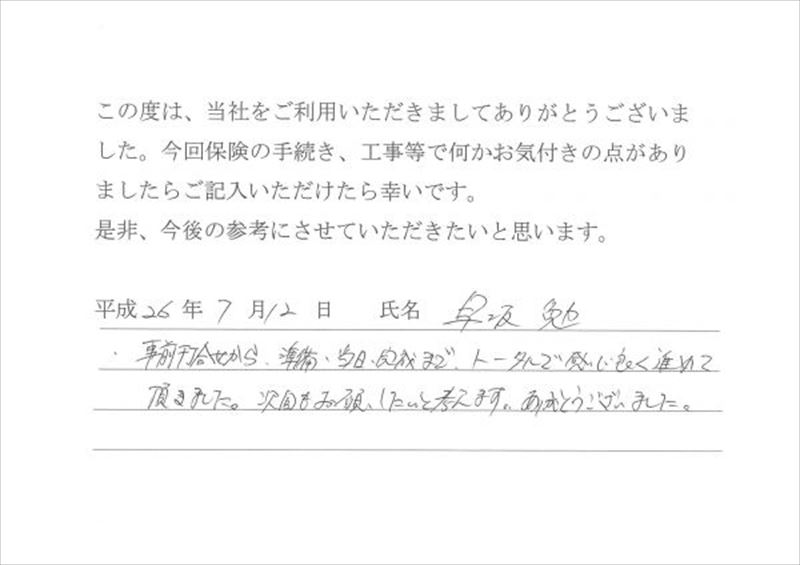 この度は、当社をご利用いただきましてありがとうございま
した。今回保険の手続き、工事等で何かお気付きの点があり
ましたらご記入いただけたら幸いです。
是非、今後の参考にさせていただきたいと思います。
平成26年7月12日 氏名 早坂 勉
・事前打合せから、準備、当日、完成まで、トータルで感じ良く進めて
頂きました。次回もお願いしたいと考えます。ありがとうございました。